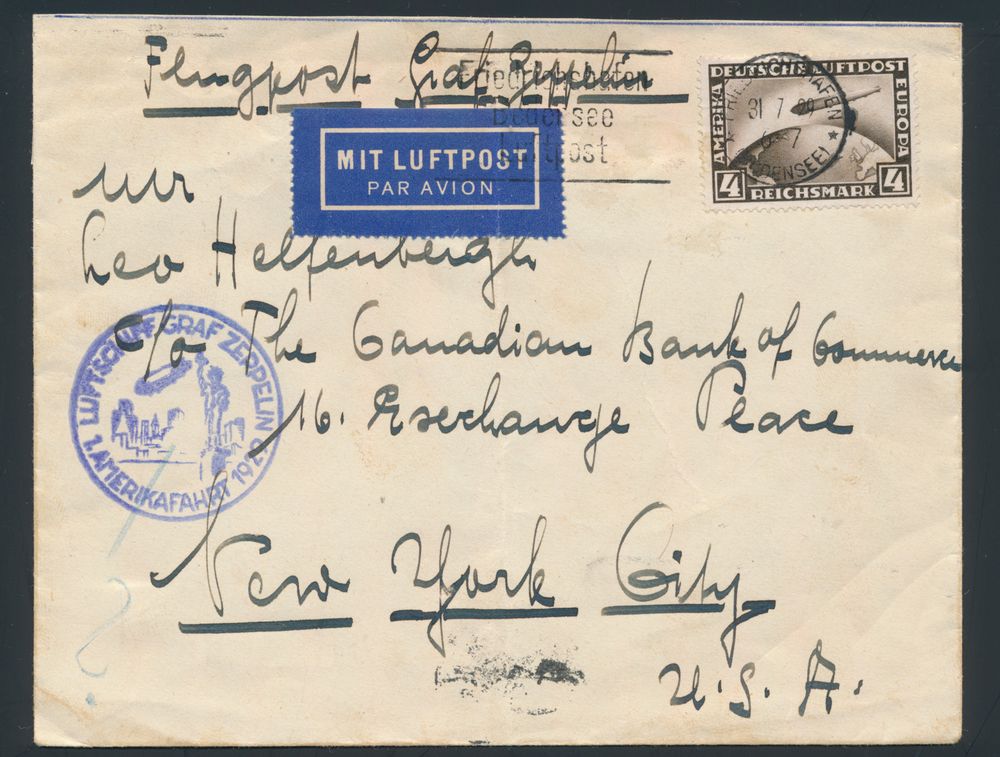 Flugpost Graf Zeppelin
Friedrichshafen
Bodensee
Luftpost
DEUTSCHE LUFTPOST
AMERIKA
EUROPA
4 REICHSMARK 4
FRIEDRICHSHAFEN
31 7 29
6-7
(BODENSEE)
MIT LUFTPOST
PAR AVION
Mr
Leo Helfenbergh
c/o The Canadian Bank of Commerce
16. Exschange Peace
New York City
U.S.A.
LUFTSCHIFF GRAF ZEPPELIN
1. AMERIKAFAHRT 1929